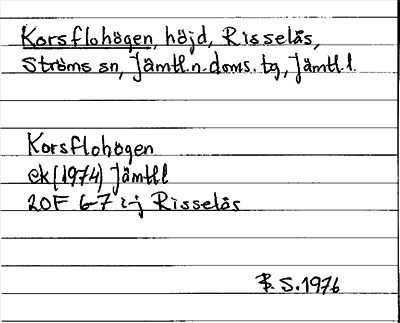 Korsflohögen, höjd, Risselås,
Ströms sn, Jämtl.n.doms.tg, Jämtl.l.
Korsflohögen
ek (1974) Jämtll
20F 6-7 i-j Risselås
B.S.1976